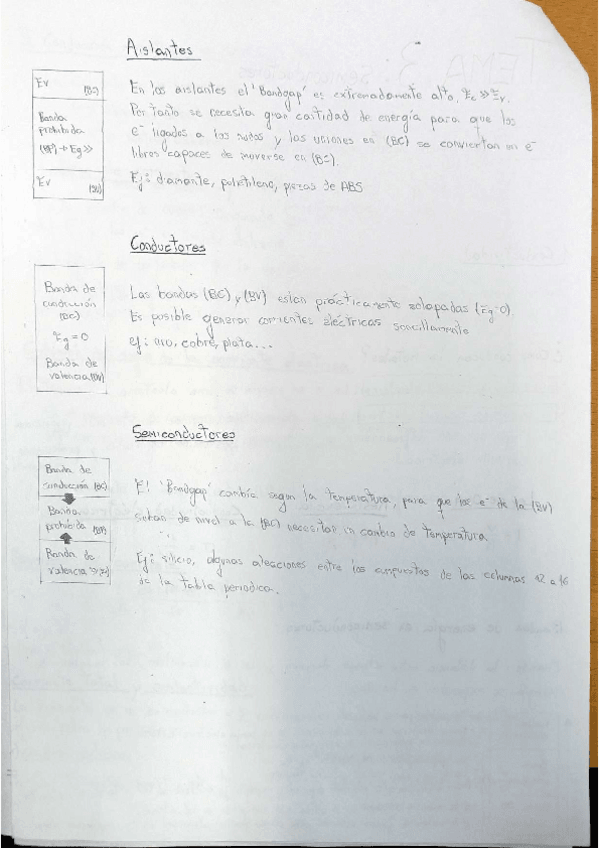 Aislantes
Ev (BC)
Banda
prohibida
(BP) → Eg >>
Ev (BV)
En los aislantes el 'Bandgap' es extremadamente alto, Ec >> Ev.
Por tanto se necesita gran cantidad de energía para que los
e⁻ ligados a los nudos y las uniones en (BC) se conviertan en e⁻
libres capaces de moverse en (BC).
Ej: diamante, polietileno, piezas de ABS
Conductores
Banda de
conducción
(BC)
Eg = 0
Banda de
valencia (BV)
Las bandas (BC) y (BV) estan prácticamente solapadas (Eg=0).
Es posible generar corrientes eléctricas sencillamente
ej: oro, cobre, plata...
Semiconductores
Banda de
conducción (BC)
Banda
prohibida (BP)
Banda de
valencia (BV)
El 'Bandgap' cambia segun la temperatura, para que los e⁻ de la (BV)
de nivel a la (BC) necesitan un cambio de temperatura
Ej: silicio, algunas aleaciones entre los compuestos de las columnas 12 a 16
de la tabla periodica.